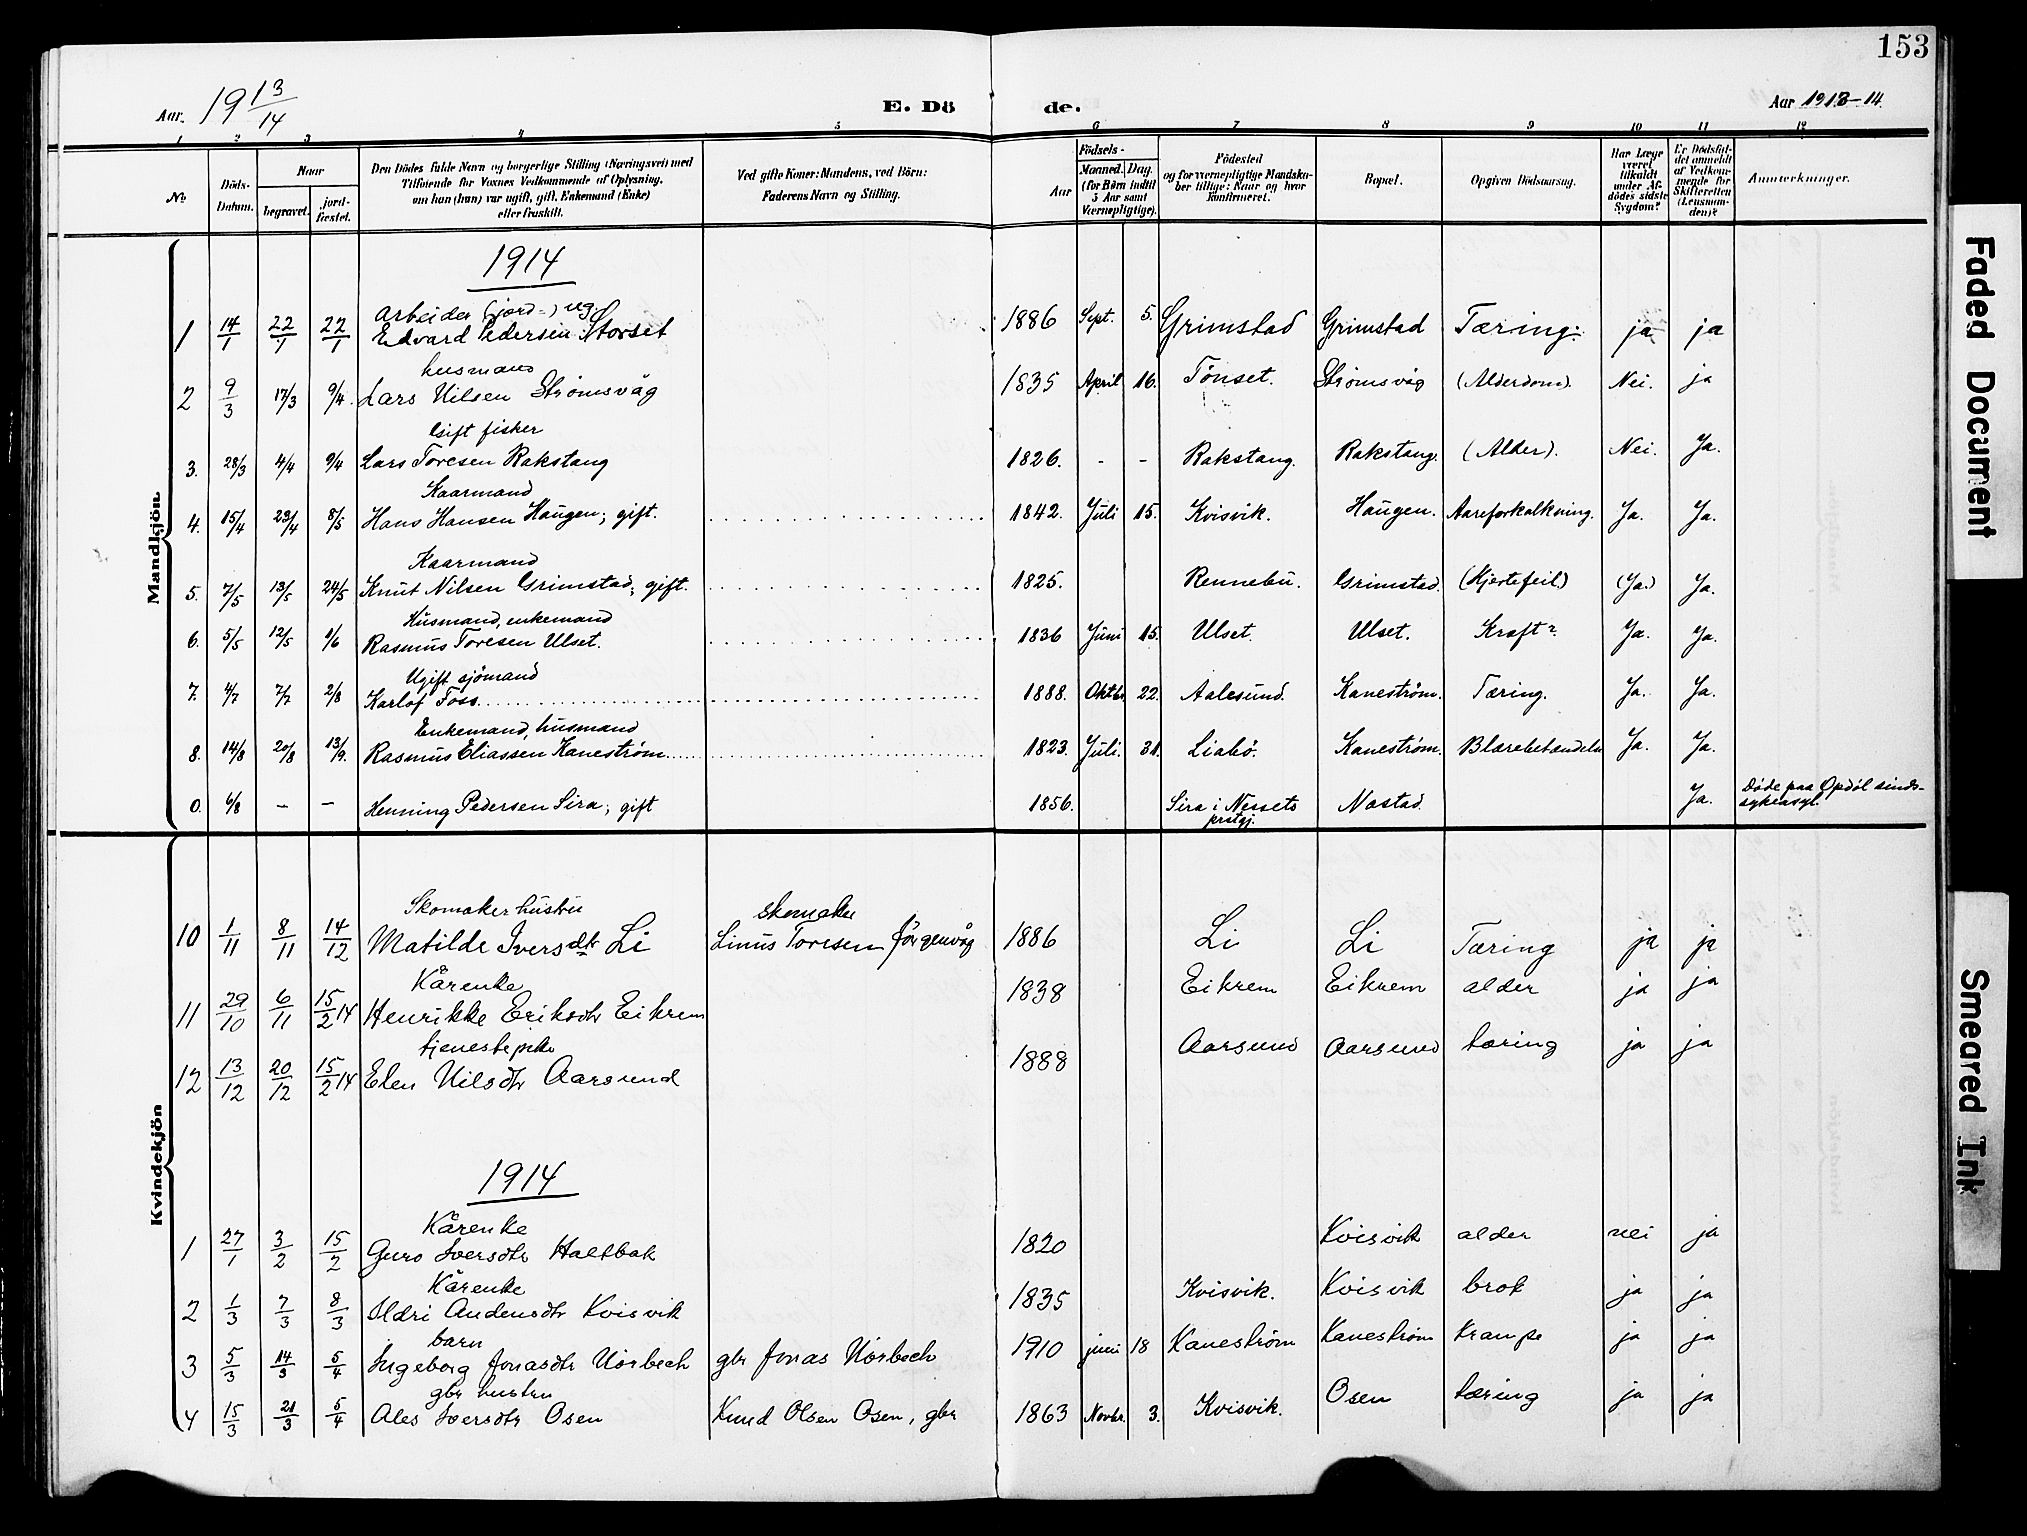 153
Aar. 1913/14
E. Dö de.
Aar 1913-14.
1 2 3 4 5 6 7 8 9 10 11 12
No
Döds-Datum.
Naar
begravet.
jord-fæstet.
Den Dödes fulde Navn og borgerlige Stilling (Næringsvei) med
Tilföiende for Voxnes Vedkommende af Oplysning,
om han (hun) var ugift, gift, Enkemand (Enke)
eller fraskilt.
Ved gifte Koner: Mandens, ved Börn:
Faderens Navn og Stilling.
Födsels-
Aar
Maaned. Dag.
(for Börn indtil
5 Aar samt
Værnepligtige).
Födested
og for værnepligtige Mandska-
ber tillige: Naar og hvor
Konfirmeret.
Bopæl.
Opgiven Dödsaarsag.
Har Læge
været
tilkaldt
under Af-
dödes sidste
Sygdom?
Er Dödsfal-
det anmeldt
af Vedkom-
mende for
Skifteretten
(Lensman-
den)?
Anmærkninger.
Mandkjön
1914
Arbeider (jord-) ug
1 14/1 22/1 22/1 Edvard Pedersen Storset 1886 Sept. 5. Grimstad Grimstad Tæring. ja ja
husmand
2 9/3 17/3 9/4. Lars Nilsen Strømsvåg 1835 April 16. Tönset. Strömsvåg (Alderdom). Nei. ja
Gift fisker
3. 28/3 4/4 9/4 Lars Toresen Rakstang 1826. - - Rakstang. Rakstang. (Alder). Nei. Ja.
Kaarmand
4. 15/4 23/4 8/5 Hans Hansen Haugen; gift. 1842. Juli 15. Kvisvik. Haugen. Aareforkalkning. Ja. Ja.
Kaarmand
5. 7/5 13/5 24/5 Knut Nilsen Grimstad; gift. 1825. Rennebu. Grimstad. (Hjertefeil) (Ja.) Ja.
Husmand, enkemand
6. 5/5 12/5 1/6 Rasmus Toresen Ulset. 1836 Juni 15. Ulset. Ulset. Kræft? Ja. Ja.
Ugift sjömand
7. 4/7 7/7 2/8 Karlof Foss. 1888. Oktbr. 22. Aalesund. Kaneström. Tæring. Ja. Ja.
Enkemand, husmand
8. 14/8 20/8 13/9. Rasmus Eliassen Kaneström. 1823. Juli. 31. Liabö. Kaneström. Ja. Ja.
0. 6/8 - - Henning Pedersen Sira; gift 1856. Sira i Nessets prstgj. Nastad. Ja. Döde paa Opdöl sinds-
sykeasyl.
Kvindekjön
Skomaker hustru skomaker
10 1/11 8/11 14/12 Matilde Iversdtr Li Linus Toresen Jörgenvåg 1886 Li Li Tæring ja ja
Kårenke
11 29/10 6/11 15/2 14 Henrikke Eriksdtr Eikrem 1838 Eikrem Eikrem alder ja ja
tjenestepike
12 13/12 20/12 15/2 14 Elen Nilsdtr Aarsund 1888 Aarsund Aarsund tæring ja ja
1914
Kårenke
1 27/1 3/2 15/2 Guro Iversdtr Haltbak 1820 Kvisvik alder nei ja
Kårenke
2 1/3 7/3 8/3 Ildri Andersdtr Kvisvik 1835 Kvisvik. Kvisvik brok ja ja
barn
3 5/3 14/3 5/4 Ingeborg Jonasdtr Norbech gbr Jonas Norbech 1910 juni 18 Kaneström Kaneström Krampe ja ja
gbr hustru
4 15/3 21/3 5/4 Ales Iversdtr Osen Knud Olsen Osen, gbr 1863 Novbr. 3. Kvisvik. Osen tæring ja ja
Faded Document
Smeared Ink